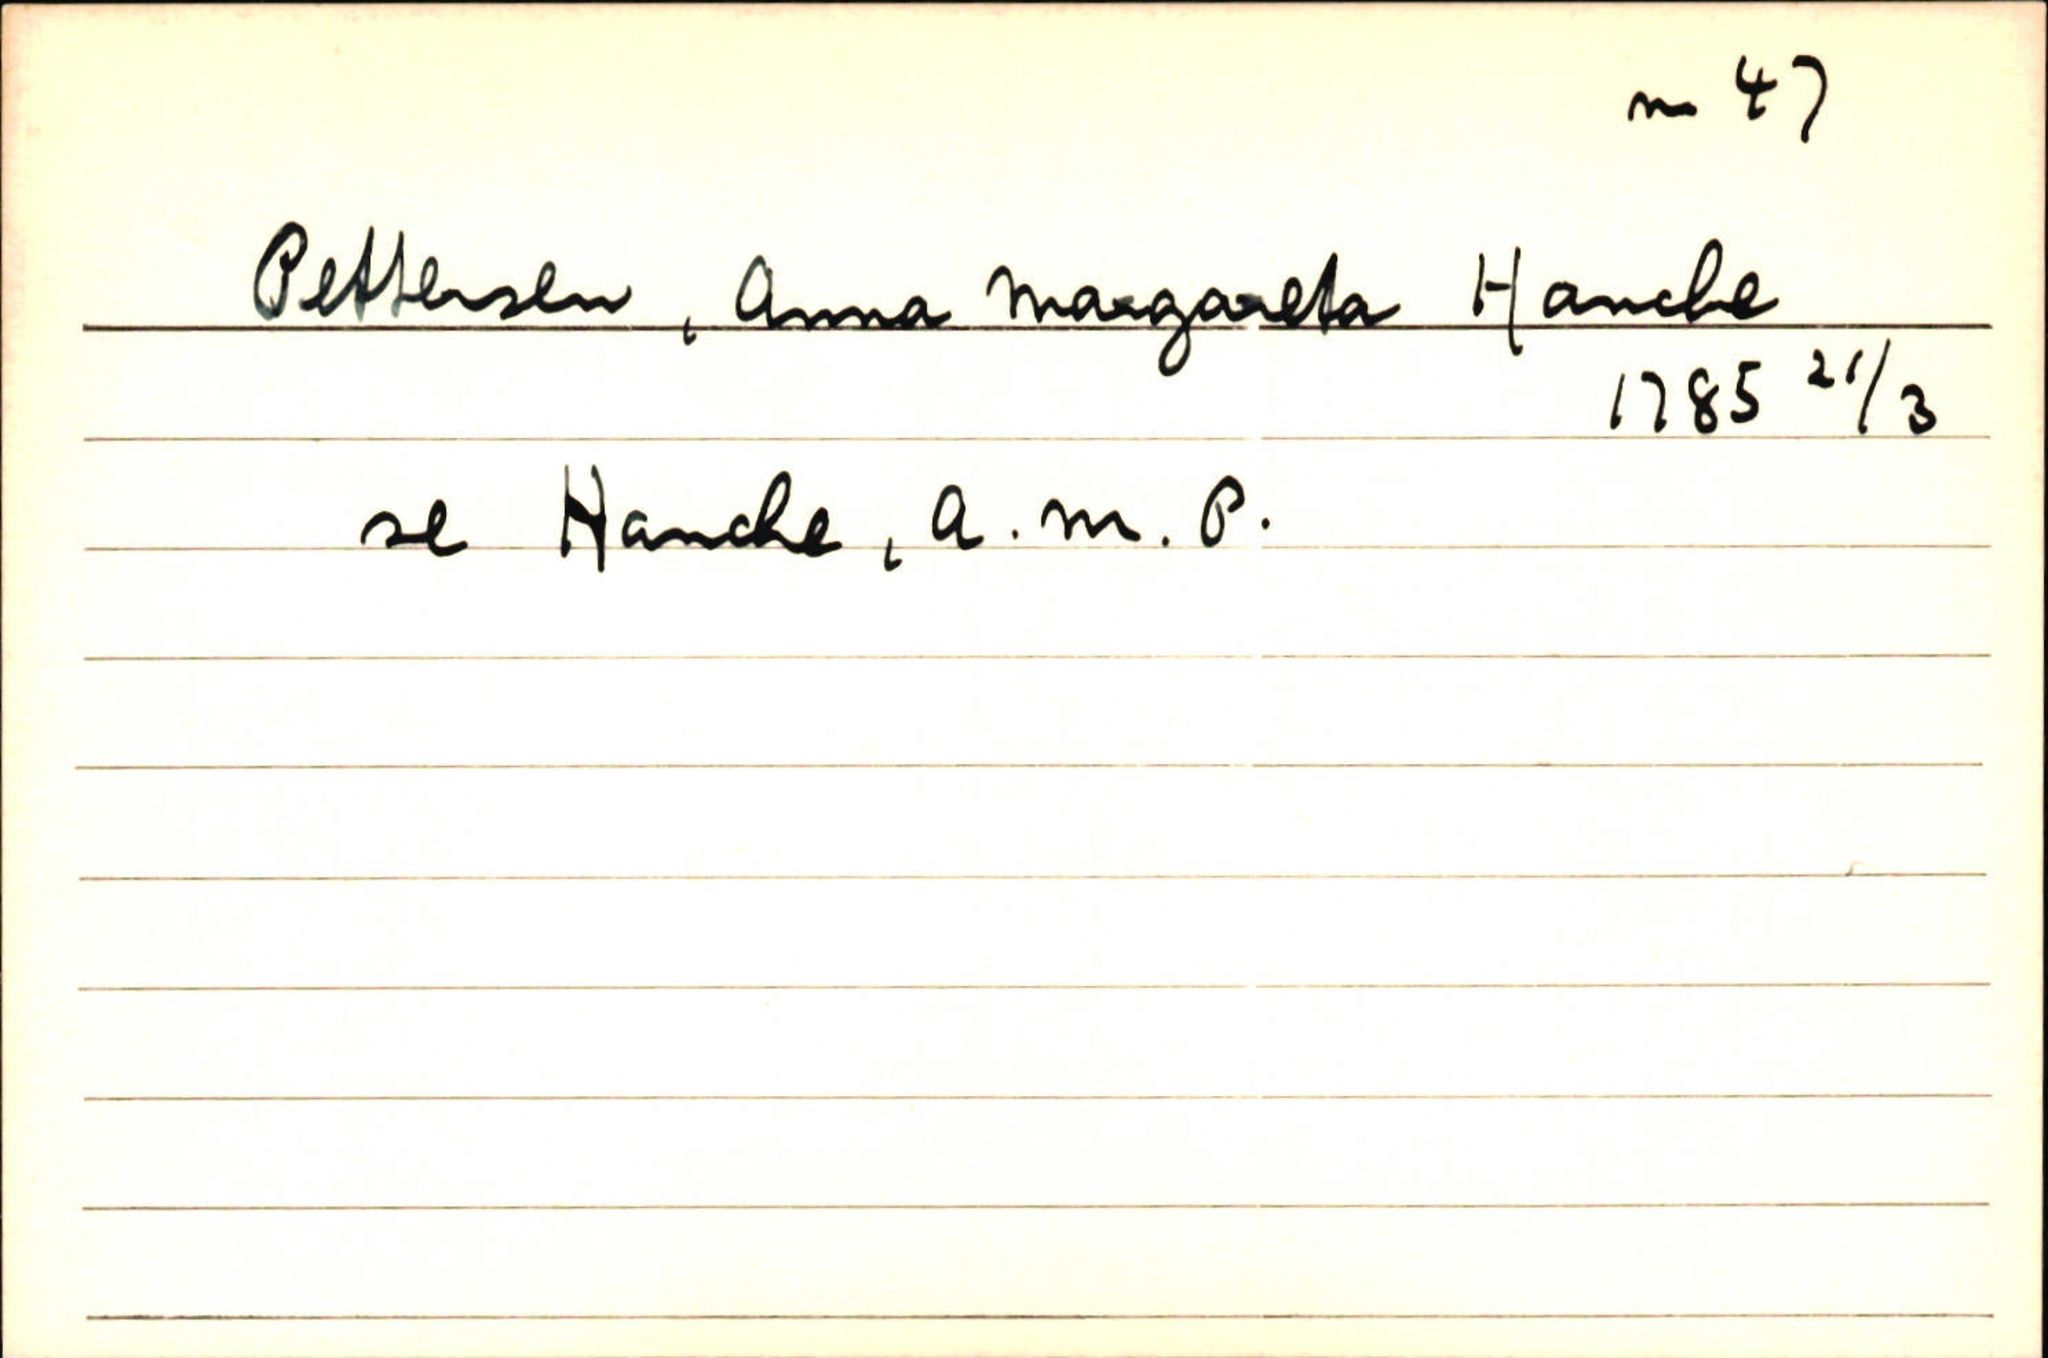 m 47
Pettersen, Anna Margareta Hanche
1785 21/3
se Hanche, A. M. P.